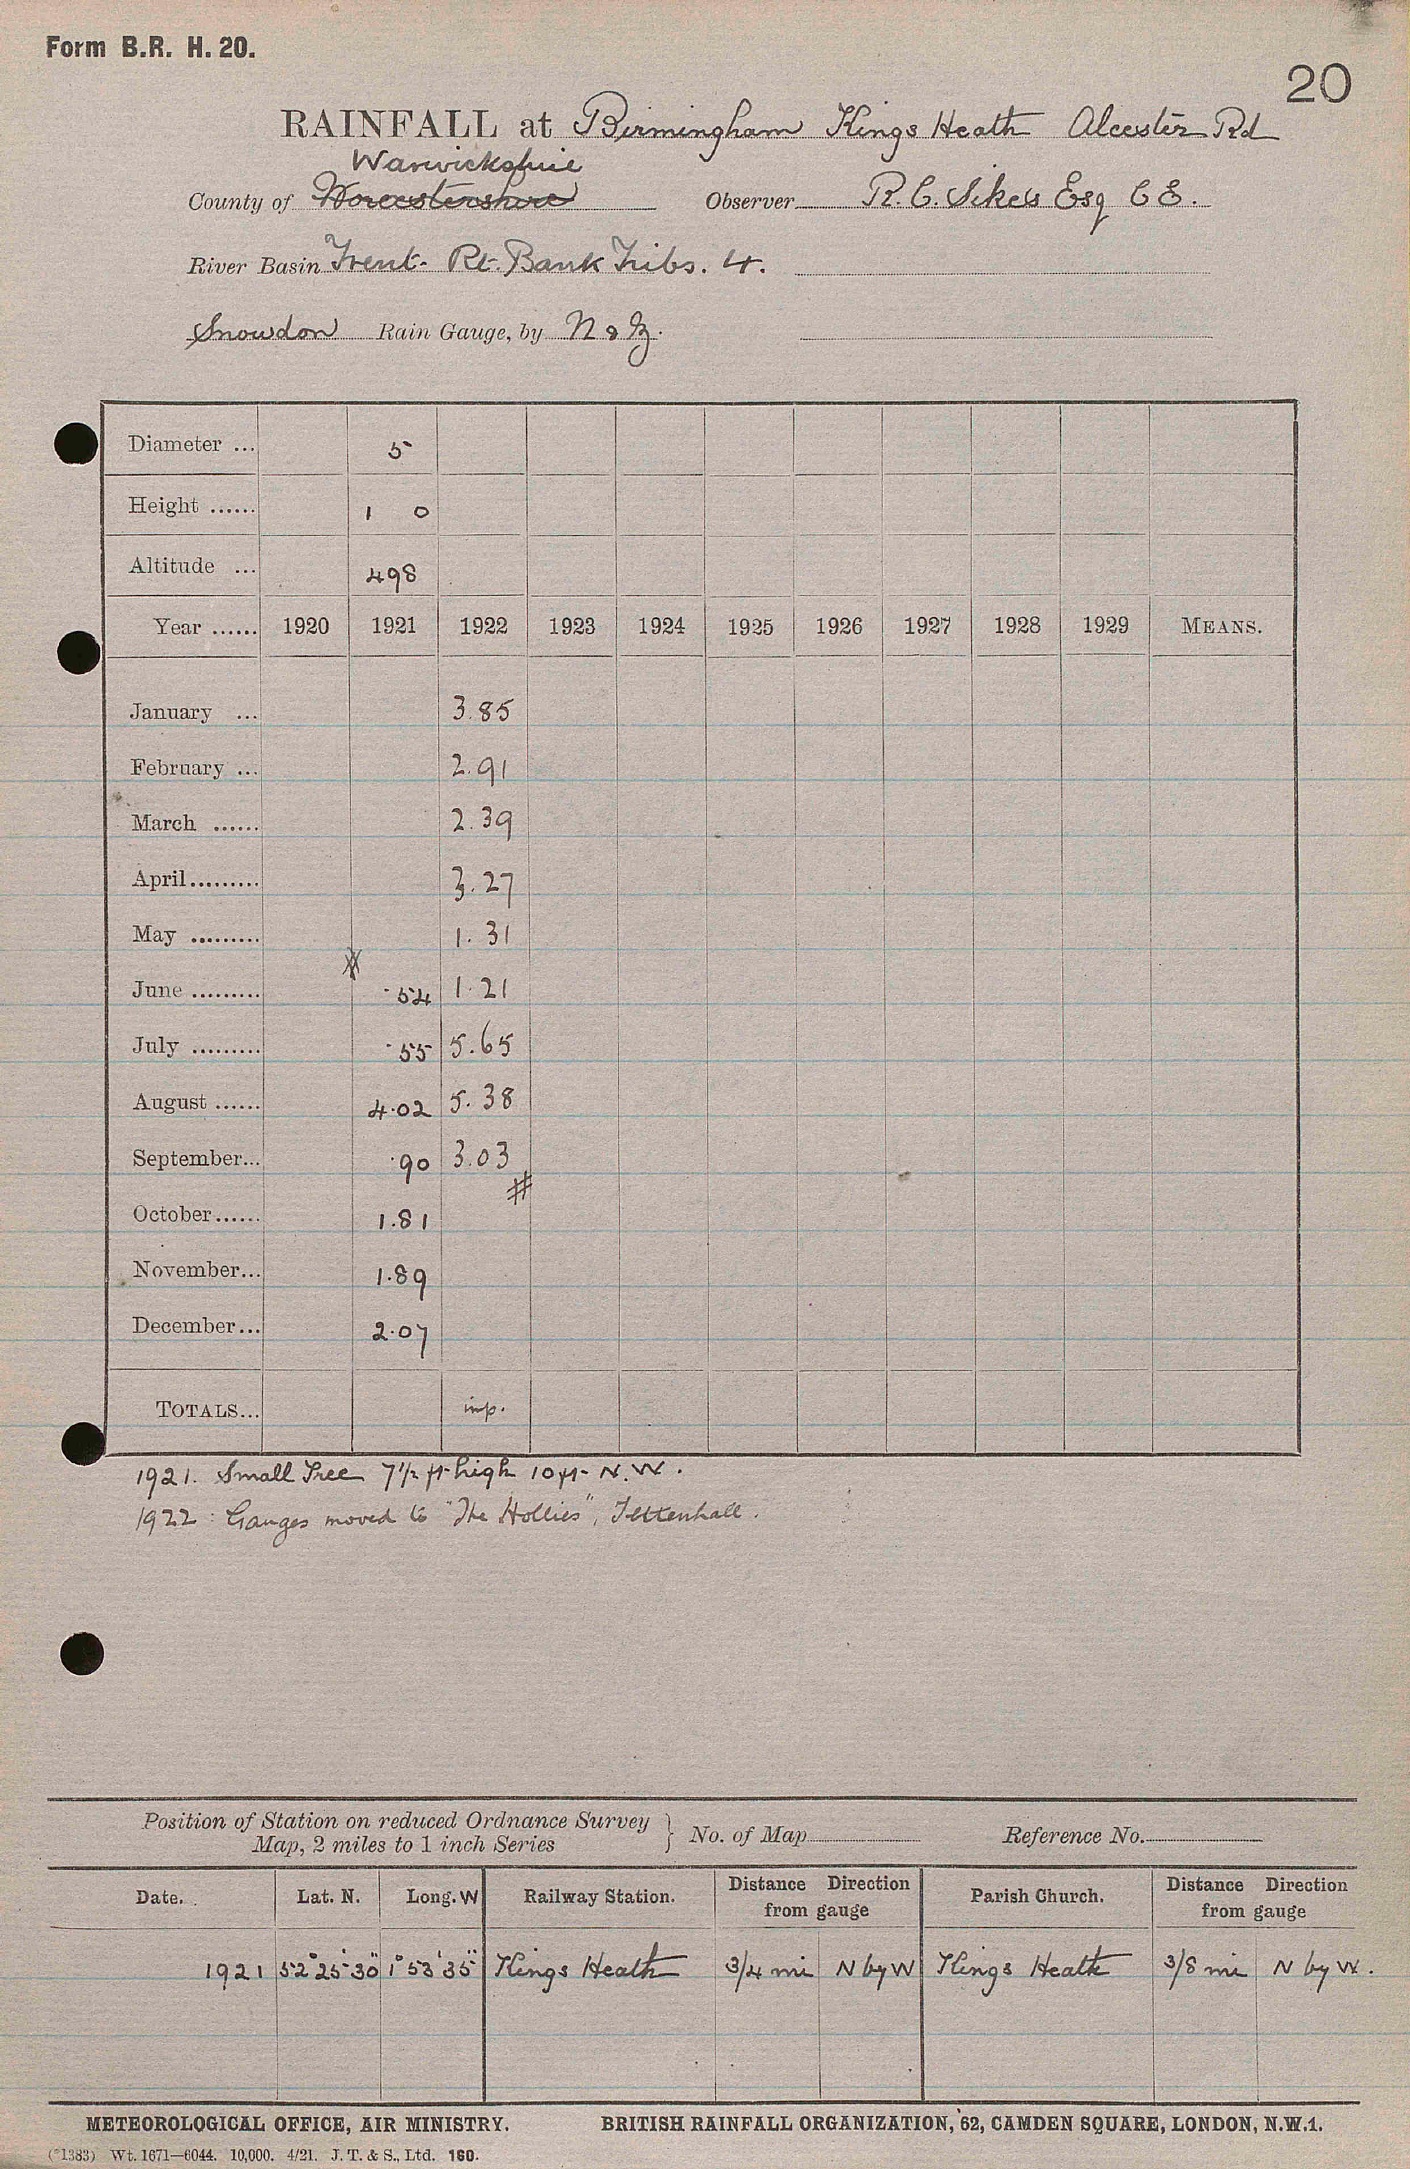 Form B.R. H. 20.
20
RAINFALL at Birmingham Kings Heath Alcester Rd
Warwickshire
County of Worcestershire Observer R. C. Sikes Esq C E.
River Basin Trent- Rt. Bank Tribs. 4.
Snowdon Rain Gauge, by N & Z.
Diameter ... 5
Height ...... 1 0
Altitude ... 498
Year ...... 1920 1921 1922 1923 1924 1925 1926 1927 1928 1929 MEANS.
January ... 3.85
February ... 2.91
March ...... 2.39
April......... 3.27
May ......... 1.31
June ......... .54 1.21
July ......... .55 5.65
August ...... 4.02 5.38
September... .90 3.03
October...... 1.81
November... 1.89
December... 2.07
TOTALS... inp.
1921. Small Tree 7½ ft high 10 ft N.W.
1922: Gauges moved to "The Hollies", Tettenhall.
Position of Station on reduced Ordnance Survey
Map, 2 miles to 1 inch Series } No. of Map Reference No.
Date. Lat. N. Long. W Railway Station. Distance from gauge Direction Parish Church. Distance from gauge Direction
1921 52° 25' 30" 1° 53' 35" Kings Heath 3/4 mi N by W Kings Heath 3/8 mi N by W.
METEOROLOGICAL OFFICE, AIR MINISTRY. BRITISH RAINFALL ORGANIZATION, 62, CAMDEN SQUARE, LONDON, N.W.1.
(*1383) Wt. 1671—6044. 10,000. 4/21. J. T. & S., Ltd. 160.